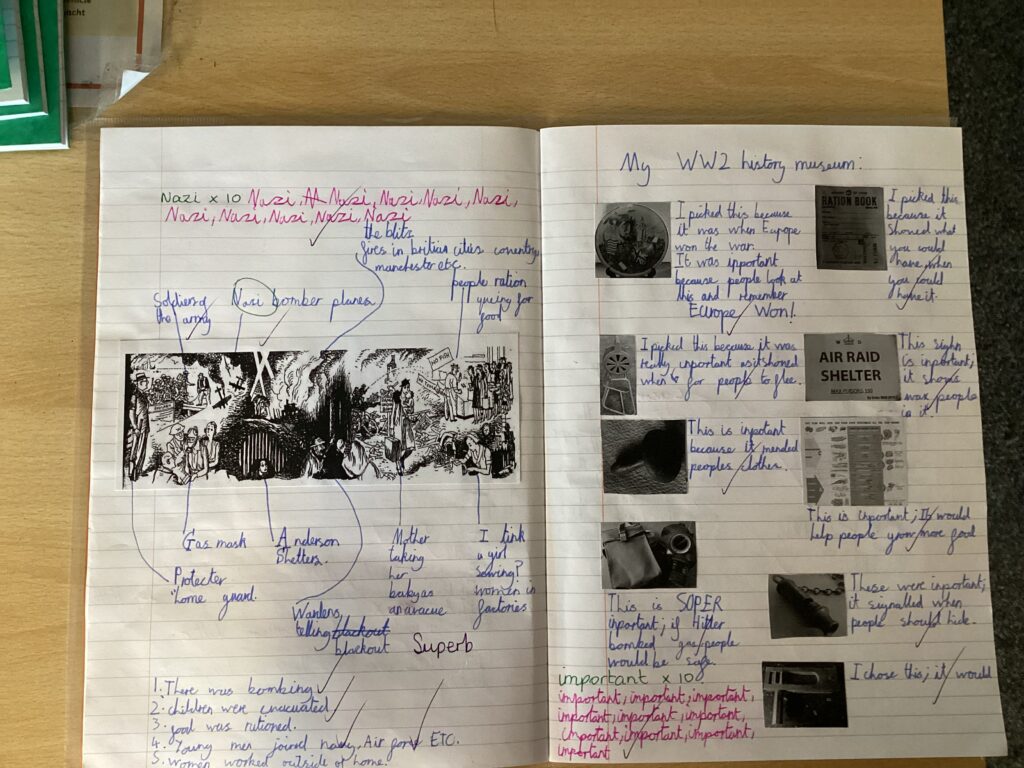 Nazi x 10 Nazi, Nazi, Nazi, Nazi, Nazi,
Nazi, Nazi, Nazi, Nazi, Nazi
the blitz
fires in britian cities coventry
manchestor etc.
people ration
yueing for
food
Soldiers of
the army
Nasi bomber planes
Gas mask
Anderson
Shelters.
Mother
taking
her
baby as
an avacue
I tink
a girl
sewing?
women in
factories
Protecter
"home guard.
Wardens,
telling blackout
blackout
Superb
1. There was bombing
2. children were evacuated
3. food was rationed.
4. Young men joined navy, Air forc ETC.
5. Women worked outside of home.
My WW2 history museum:
I picked this because
it was when Europe
won the war.
It was ipportant
because people look at
this and remember
Europe Won!
RATION BOOK
I picked this
because it
Showed what
you could
have when
you could
have it.
I picked this because it was
really inportant as it showed
when for people to flee.
AIR RAID
SHELTER
This sighn
is inportant,
it shows
people
in it
This is inpotant
because it mended
peoples clothes.
This is inportant; It would
help people grow more food
This is SOPER
inportant; if Hitler
bomked gas people
would be safe.
These were inportant;
it signalled when
people should hide.
I chose this; it would
important x 10
important, important, important,
important, important, important,
important, important, important,
important